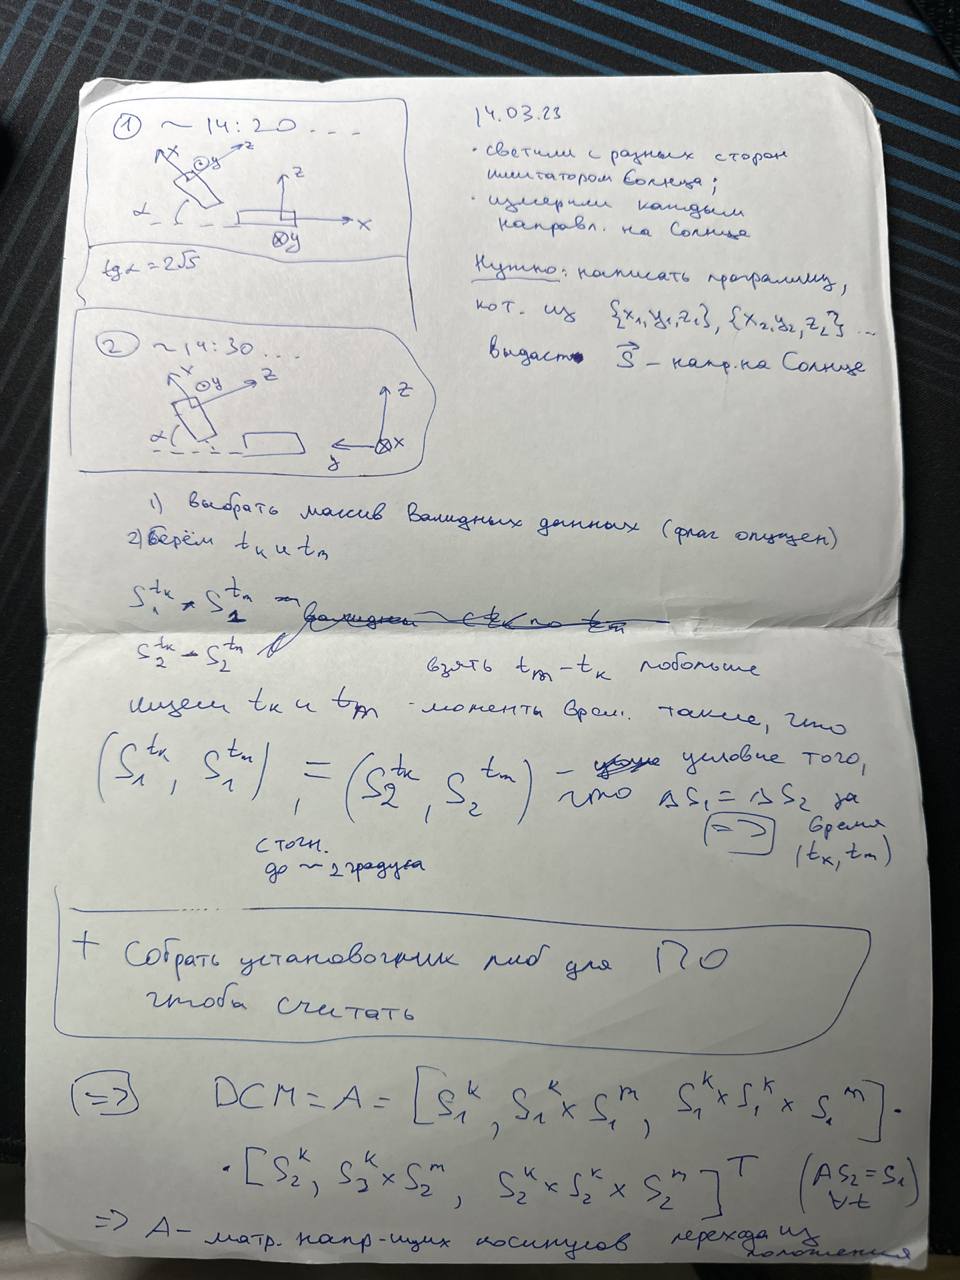 ① ~ 14:20 ...
x y z
α
z
x
y
tgα = 2√5
② ~14:30 ...
x y z
α
z
x
y
14.03.23
• светили с разных сторон
имитатором Солнца;
• измерили каждым
направл. на Солнце
Нужно: написать программу,
кот. из {x₁,y₁,z₁}, {x₂,y₂,z₂} ...
выдаст S⃗ – напр. на Солнце
1) выбрать массив валидных данных (флаг опущен)
2) Берём tₖ и tₘ
S₁^tₖ S₁^tₘ
S₂^tₖ S₂^tₘ
взять tₘ – tₖ побольше
ищем tₖ и tₘ - моменты врем. такие, что
(S₁^tₖ, S₁^tₘ) = (S₂^tₖ, S₂^tₘ) – условие того,
что ΔS₁ = ΔS₂ за
время
(tₖ, tₘ)
=>
с точн.
до ~ 2 градуса
+ Собрать установочник либ для ПО
чтобы считать
=> DCM = A = [S₁^k, S₁^k × S₁^m, S₁^k × S₁^k × S₁^m] ·
· [S₂^k, S₂^k × S₂^m, S₂^k × S₂^k × S₂^m]^T (AS₂ = S₁)
∀t
=> A – матр. напр-ящих косинусов перехода из
положения